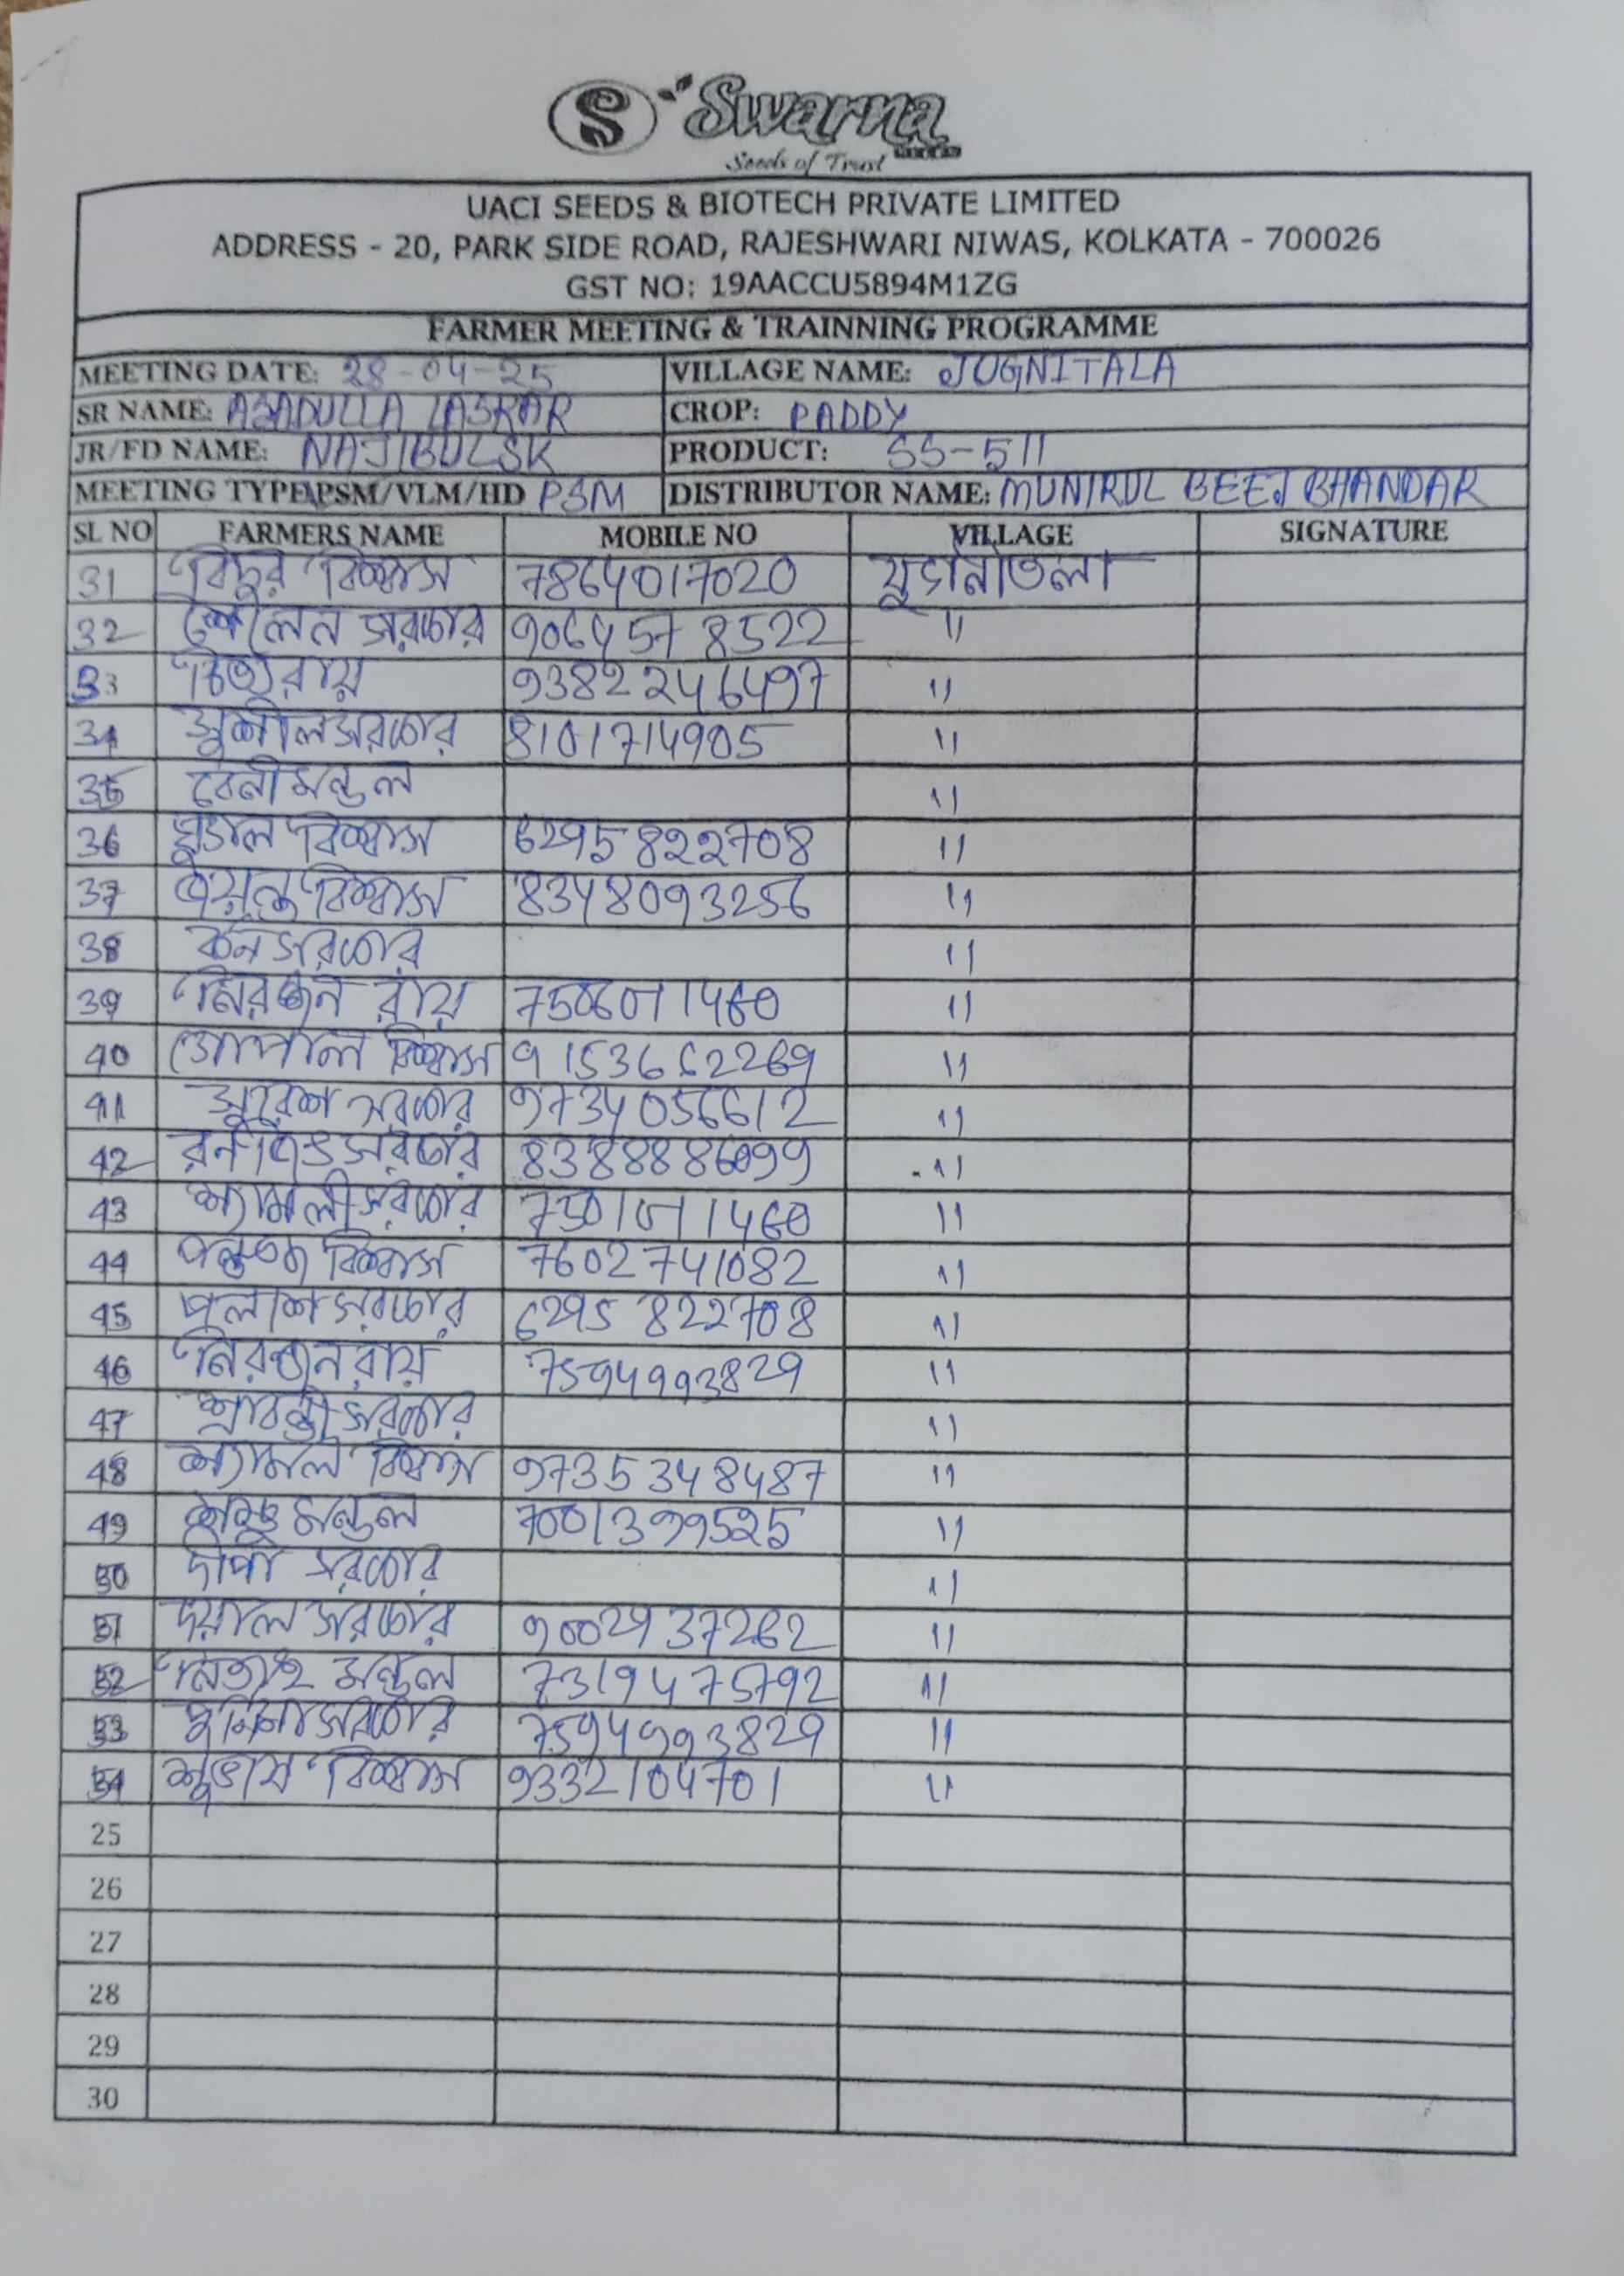 S Swarna
Seeds of Trust
UACI SEEDS & BIOTECH PRIVATE LIMITED
ADDRESS - 20, PARK SIDE ROAD, RAJESHWARI NIWAS, KOLKATA - 700026
GST NO: 19AACCU5894M1ZG
FARMER MEETING & TRAINNING PROGRAMME
MEETING DATE: 28-04-25 VILLAGE NAME: JUGNITALA
SR NAME: ASADULLA LASKAR CROP: PADDY
JR/FD NAME: NAJIBULSK PRODUCT: SS-511
MEETING TYPE\PSM/VLM/HD PSM DISTRIBUTOR NAME: MUNIRUL BEEJ BHANDAR
SL NO FARMERS NAME MOBILE NO VILLAGE SIGNATURE
31 বিদুর বিশ্বাস 7864017020 যুগনীতলা
32 শৈলেন সরকার 9064578522 "
33 রায় 9382246497 "
34 সুশীল সরকার 8101714905 "
35 বেনী মন্ডল "
36 বিশ্বাস 6295822708 "
37 জয়ন্ত বিশ্বাস 8348093256 "
38 সরকার "
39 নিরঞ্জন রায় "
40 গোপাল বিশ্বাস 9153662269 "
41 সুরেশ সরকার 9734056612 "
42 রনজিত সরকার "
43 শ্যামলী সরকার "
44 পঙ্কজ বিশ্বাস 7602741082 "
45 পলাশ সরকার 6295822708 "
46 নিরঞ্জন রায় 7594993829 "
47 শ্রাবন্তী সরকার "
48 শ্যামল বিশ্বাস 9735348487 "
49 মন্ডল 7001399525 "
50 দীপা সরকার "
51 দয়াল সরকার "
52 নিতাই মন্ডল 7319475792 "
53 সরকার 7594993829 "
54 শুভাষ বিশ্বাস 9332104701 "
25
26
27
28
29
30